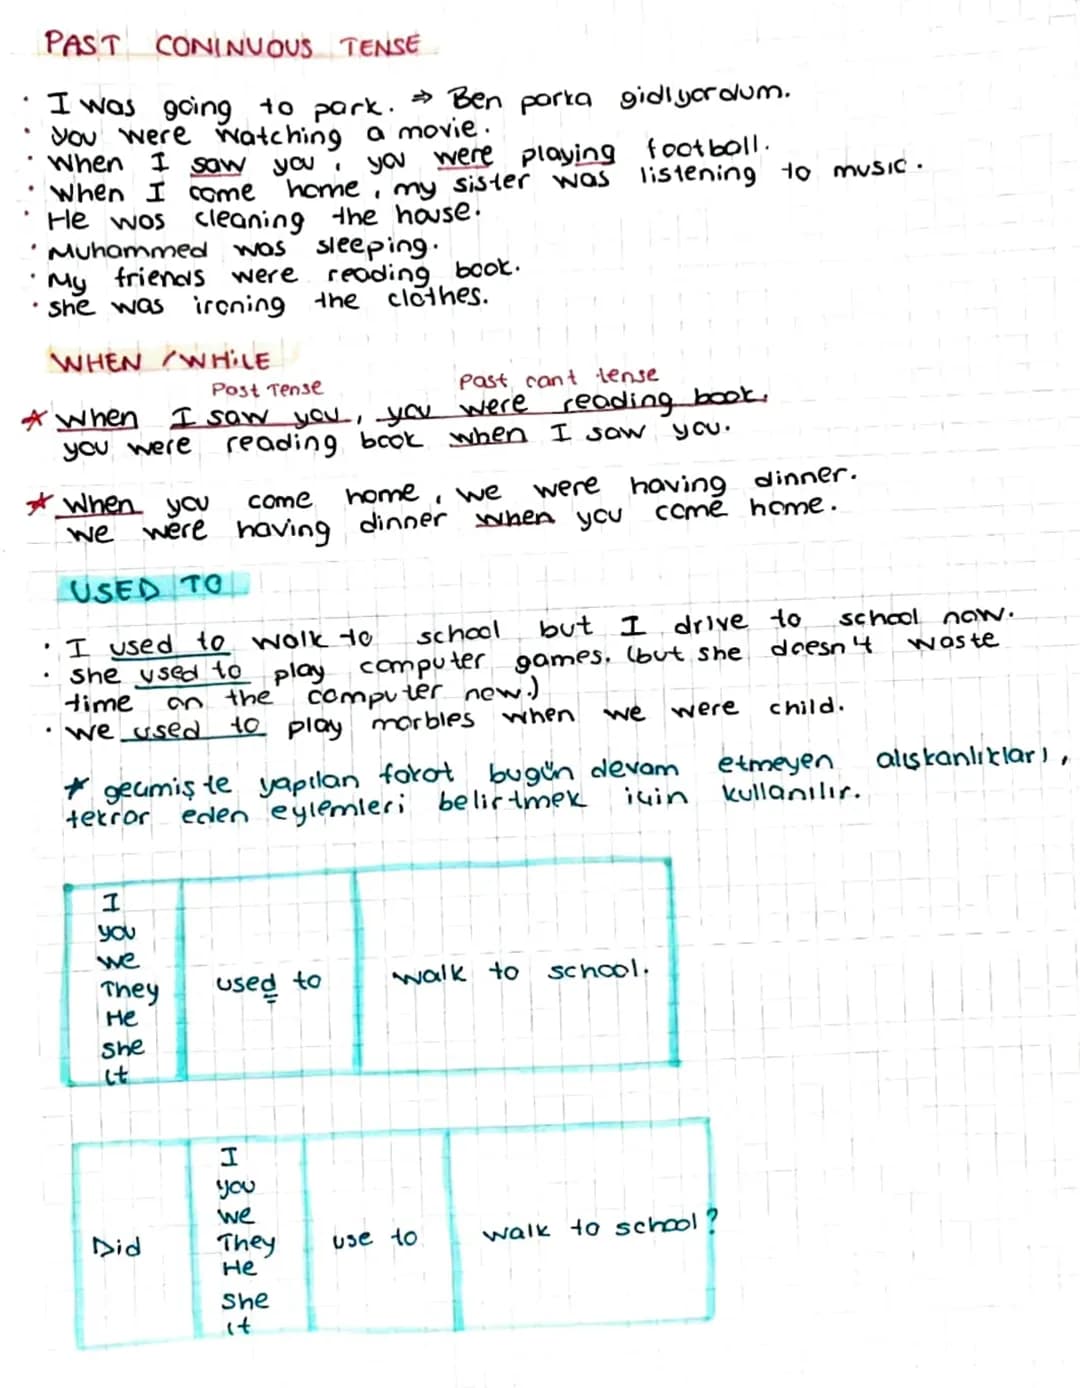 PAST CONINUOUS TENSE
· I was going to park. ⇒ Ben parka gidiyordum.
· you were watching a movie.
· when I saw you, you were playing football.
· when I came home, my sister was listening to music.
· He was cleaning the house.
· Muhammed was sleeping.
· My friends were reading book.
· she was ironing the clothes.
WHEN / WHiLE
Past Tense Past cont tense
* when I saw you, you were reading book.
you were reading book when I saw you.
* when you came home, we were having dinner.
we were having dinner when you came home.
USED TO
· I used to walk to school but I drive to school now.
· she used to play computer games. (but she doesn't waste
time on the computer now.)
· we used to play marbles when we were child.
* geçmişte yapılan fakat bugün devam etmeyen alışkanlıkları,
tekrar eden eylemleri belirtmek için kullanılır.
I
you
we
They
He
she
it
used to
walk to school.
Did
I
you
we
They
He
she
it
use to
walk to school?